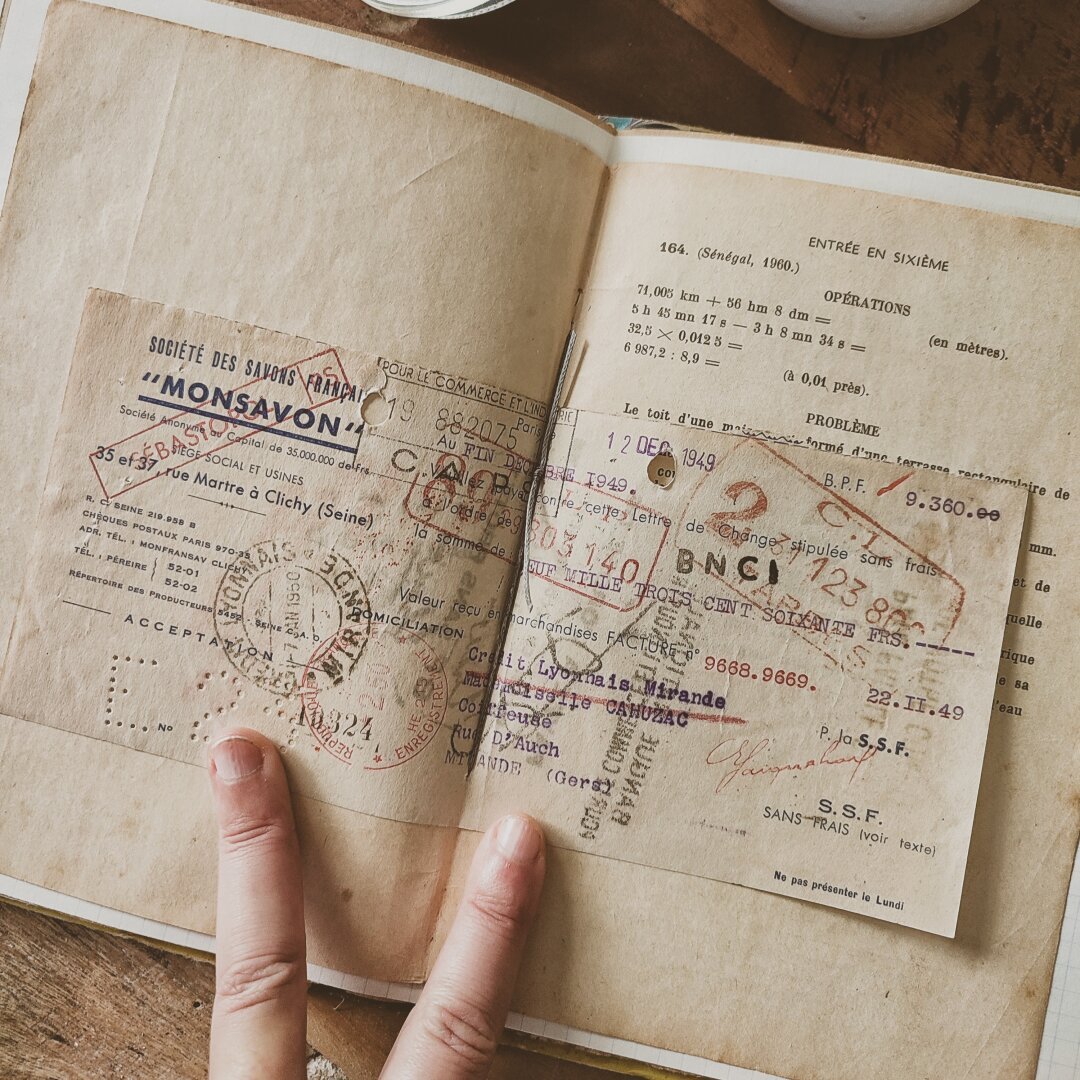 SOCIÉTÉ DES SAVONS FRANÇAI
"MONSAVON"
Société Anonyme au Capital de 35.000.000 de frs
SIÈGE SOCIAL ET USINES
35 et 37, rue Martre à Clichy (Seine)
R. C. SEINE 219.958 B
CHÈQUES POSTAUX PARIS 970-35
ADR. TÉL. : MONFRANSAV CLICHY
TÉL. : PÉREIRE 52-01
52-02
RÉPERTOIRE DES PRODUCTEURS 5452 SEINE C.A.O.
ACCEPTATION
No
10324
POUR LE COMMERCE ET L'IND
19 882075
Paris
Au FIN DEC BRE 1949.
C.A.P.
12 DEC 1949
B.P.F. 9.360.00
Veuillez payer contre cette Lettre de Change stipulée sans frais
à l'ordre de
803 140
BNCI
la somme de
EUF MILLE TROIS CENT SOIXANTE FRS.-----
Valeur reçu en marchandises FACTURE n° 9668.9669.
DOMICILIATION
22.II.49
Crédit Lyonnais Mirande
Mademoiselle CAHUZAC
Coiffeuse
Rue D'Auch
MIRANDE (Gers)
P. la S.S.F.
S.S.F.
SANS FRAIS (voir texte)
Ne pas présenter le Lundi
ENTRÉE EN SIXIÈME
164. (Sénégal, 1960.)
OPÉRATIONS
71,005 km + 56 hm 8 dm = (en mètres).
5 h 45 mn 17 s — 3 h 8 mn 34 s =
32,5 × 0,012 5 =
6 987,2 : 8,9 = (à 0,01 près).
PROBLÈME
Le toit d'une formé d'une terrasse rectangulaire de
mm.
et de
quelle
rique
sa
'eau